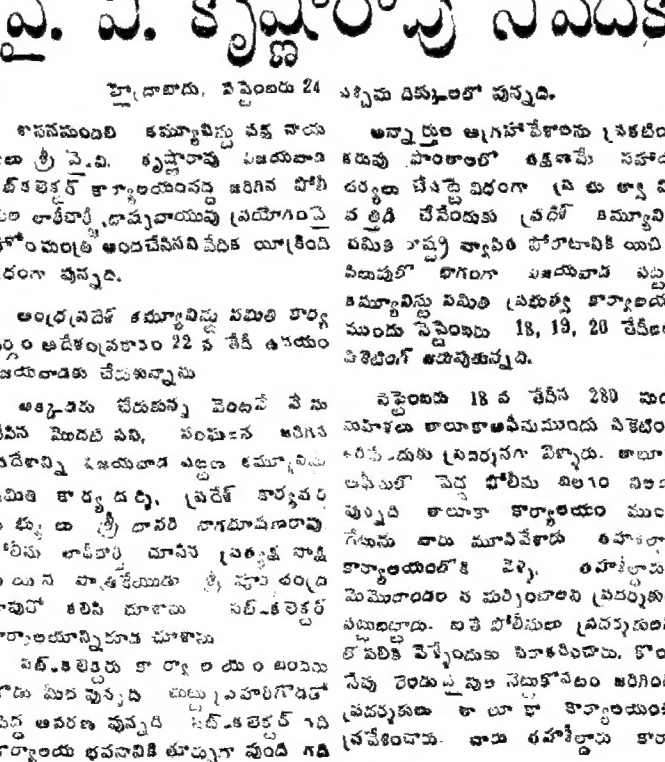 వై. వి. కృష్ణారావు నివేదిక
హైదాబాదు, సెప్టెంబరు 24
శాసనమండలి కమ్యూనిస్టు పక్ష నాయ
శ్రీ వై.వి. కృష్ణారావు విజయవాడ
సబ్‌కలెక్టర్ కార్యాలయంవద్ద జరిగిన పోలీ
లాఠీచార్జి, బాష్పవాయువు ప్రయోగంపై
హోంమంత్రికి అందచేసిన నివేదిక యీక్రింది
విధంగా వున్నది.
ఆంధ్రప్రదేశ్ కమ్యూనిస్టు సమితి కార్య
ఆదేశం ప్రకారం 22 వ తేదీ ఉదయం
విజయవాడకు చేరుకున్నాను
అక్కడకు చేరుకున్న వెంటనే నేను
చేసిన మొదటి పని, సంఘటన జరిగిన
ప్రదేశాన్ని విజయవాడ పట్టణ కమ్యూనిస్టు
సమితి కార్యదర్శి, ప్రదేశ్ కార్యవర్గ
సభ్యులు శ్రీ దాసరి నాగభూషణరావు
పోలీసు లాఠీచార్జి చూసిన ప్రత్యక్ష సాక్షి
పాత్రికేయుడు శ్రీ చంద్ర
కలిసి చూశాను సబ్-కలెక్టర్
కార్యాలయాన్నికూడ చూశాను
సబ్-కలెక్టరు కార్యాలయం బందరు
రోడు మీద వున్నది చుట్టు ప్రహరిగోడతో
పెద్ద ఆవరణ వున్నది సబ్-కలెక్టర్ గది
కార్యాలయ భవనానికి తూర్పుగా వుంది గది
పశ్చిమ దిక్కులలో వున్నది.
అన్నార్తుల ఆగ్రహావేశాలను ప్రకటిం
కరువు ప్రాంతాలలో తక్షణమే సహా
చర్యలు చేపట్టె విధంగా ప్రభుత్వాని
వత్తిడి చేసేందుకు ప్రదేశ్ కమ్యూని
సమితి రాష్ట్ర వ్యాపిత పోరాటానికి యిచ్చి
పిలుపులో భాగంగా విజయవాడ పట్ట
కమ్యూనిస్టు సమితి ప్రభుత్వ కార్యాలయ
ముందు సెప్టెంబరు 18, 19, 20 తేదీల
పికెటింగ్ జరుపుతున్నది.
సెప్టెంబరు 18 వ తేదీన 280 మం
మహిళలు తాలూకాఆఫీసుముందు పికెటిం
జరిపేందుకు ప్రదర్శనగా వెళ్ళారు. తాలూ
ఆఫీసులో పెద్ద పోలీసు బలగం
వున్నది తాలూకా కార్యాలయం ముం
గేటును వారు మూసివేశారు తహశీల్దా
కార్యాలయంలోకి వెళ్ళి, తహశీల్దారు
మెమొరాండం సమర్పించాలని ప్రదర్శకు
పట్టుబట్టారు. ఐతే పోలీసులు ప్రదర్శకుల
లోపలికి వెళ్ళేందుకు నిరాకరించారు. కొం
సేపు రెండువైపుల నెట్టుకోవటం జరిగింది
ప్రదర్శకులు తాలూకా కార్యాలయం
ప్రవేశించారు. వారు తహశీల్దారు కార్యా